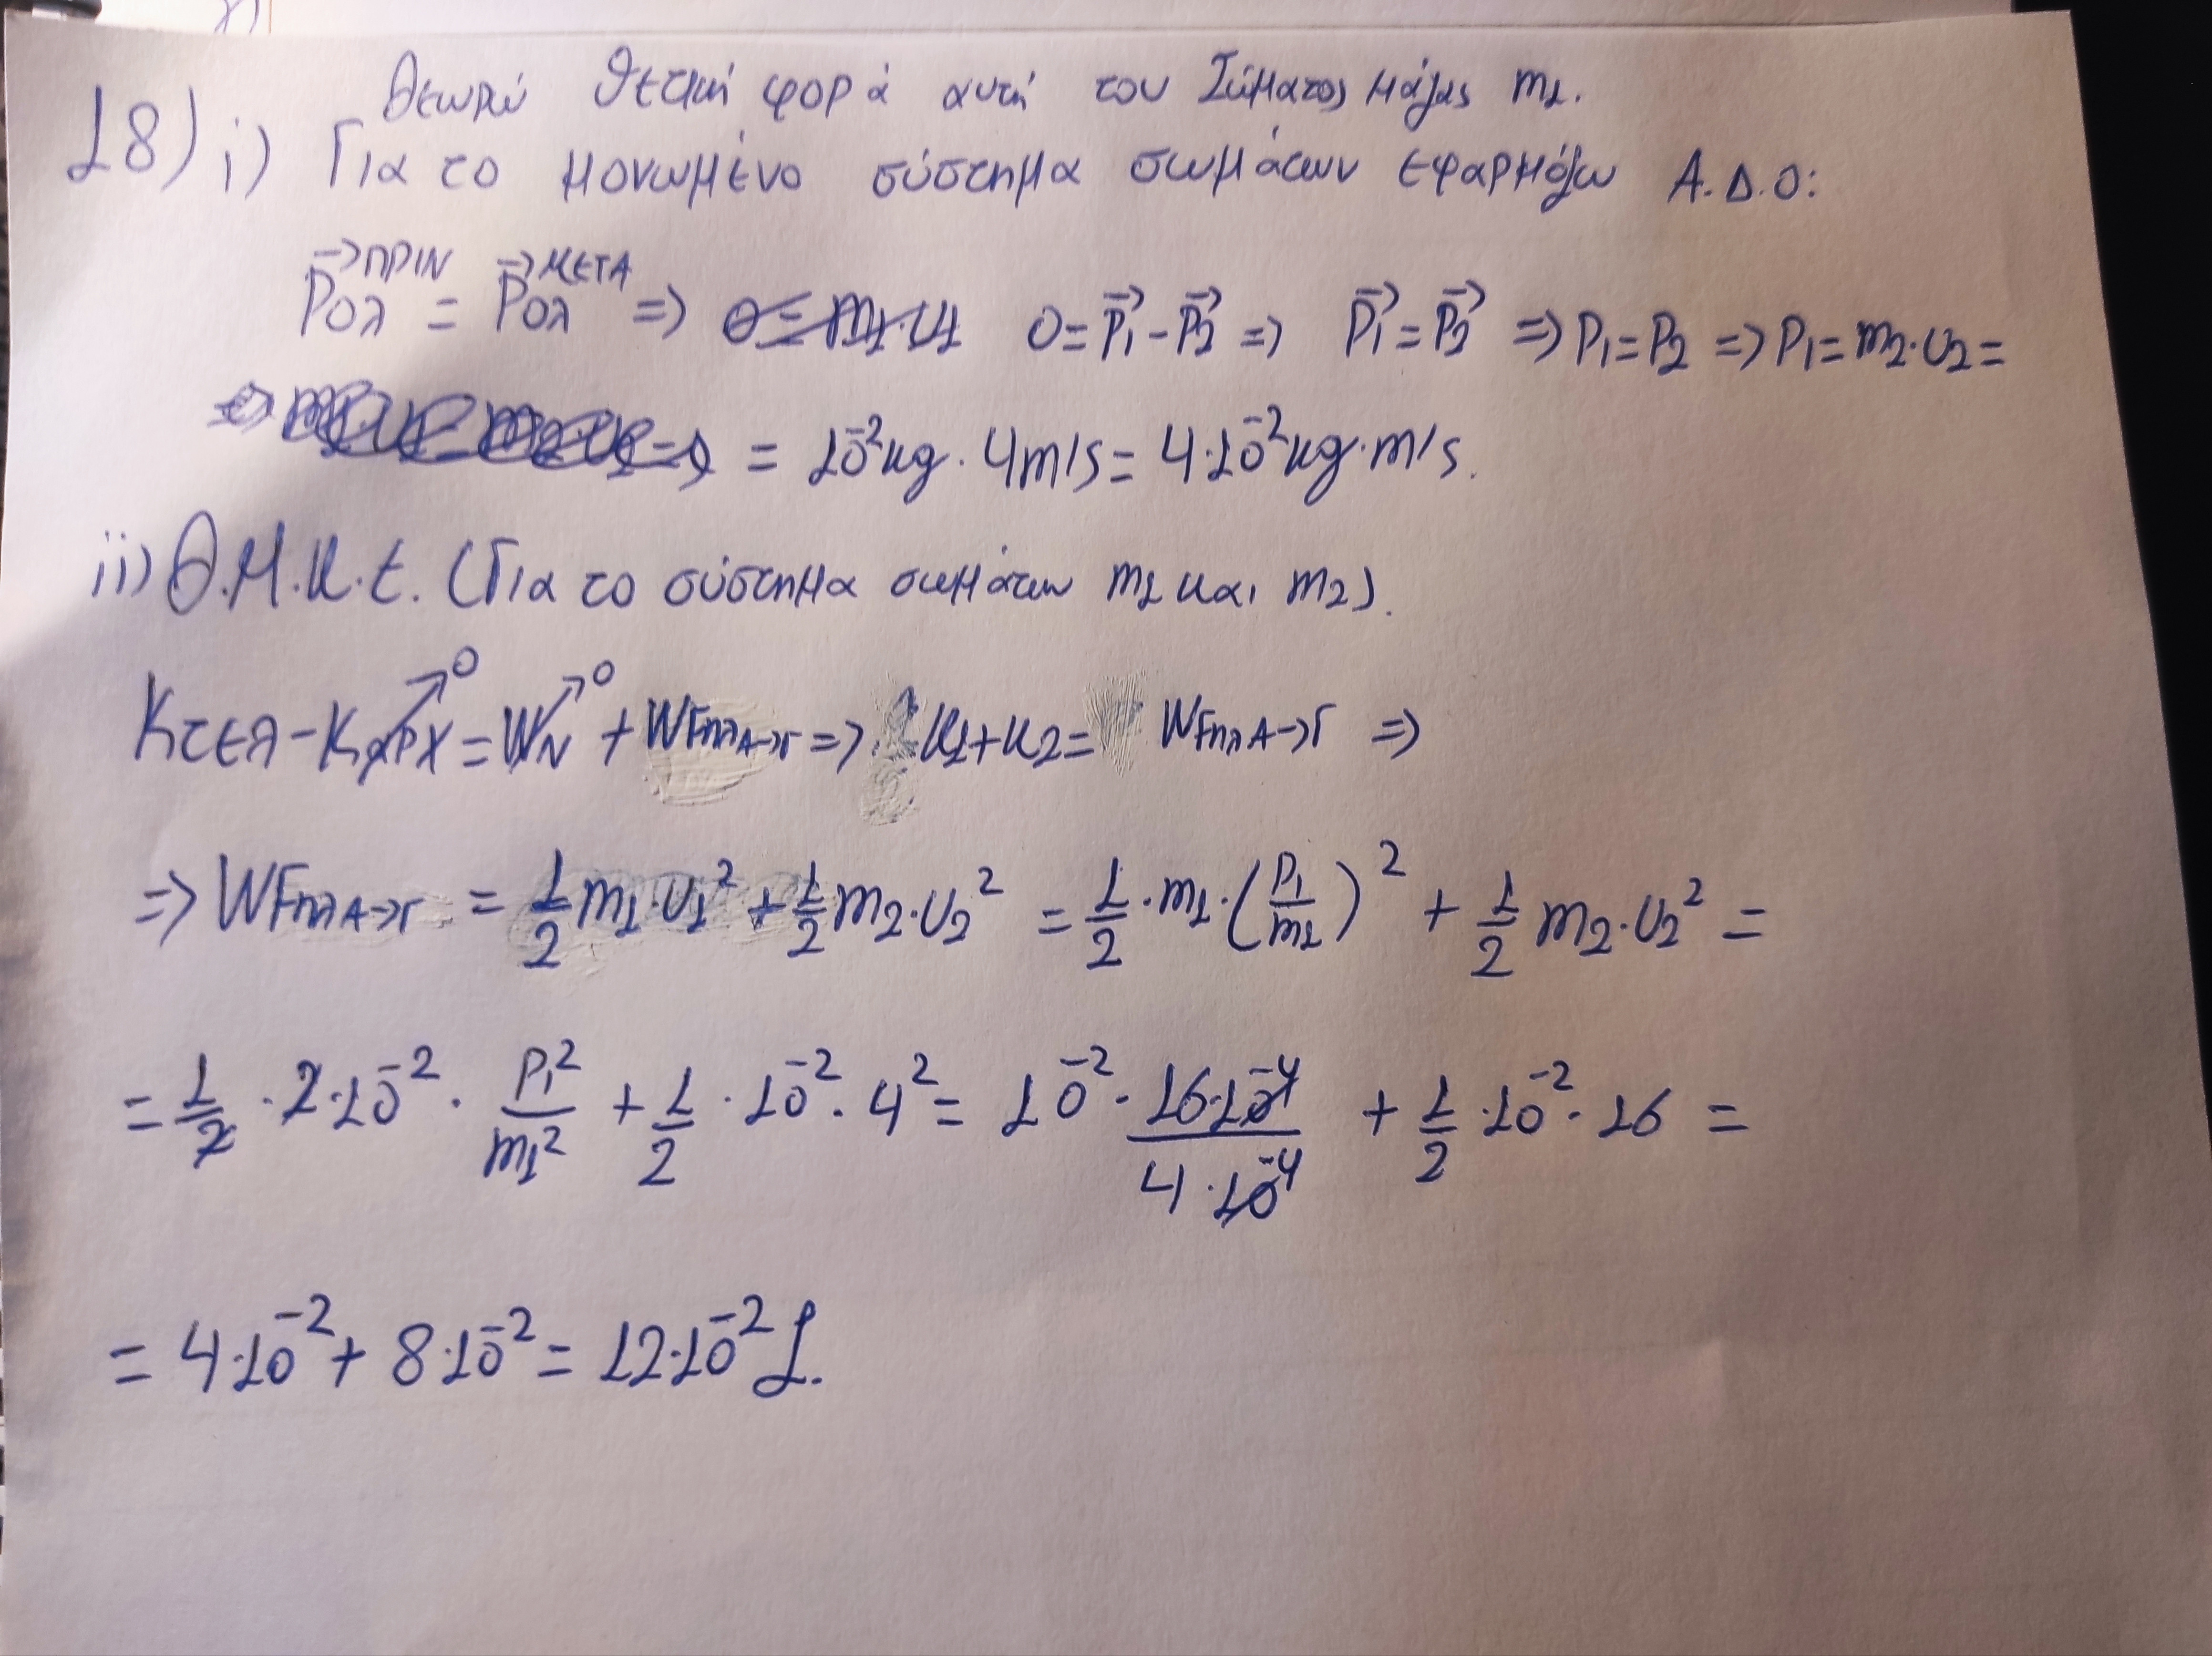 Θεωρώ θετική φορά αυτή του Σώματος μάζας m₁.
18) i) Για το μονωμένο σύστημα σωμάτων εφαρμόζω Α.Δ.Ο:
P⃗ολ^ΠΡΙΝ = P⃗ολ^ΜΕΤΑ => 0 = P⃗₁ - P⃗₂ => P⃗₁ = P⃗₂ => P₁ = P₂ => P₁ = m₂·υ₂ =
= 10⁻² kg · 4m/s = 4·10⁻² kg·m/s.
ii) Θ.Μ.Κ.Ε. (Για το σύστημα σωμάτων m₁ και m₂).
Κτελ - Καρχ↗0 = WN↗0 + WFηλA→Γ => K₁+K₂ = WFηλA→Γ =>
=> WFηλA→Γ = 1/2 m₁·υ₁² + 1/2 m₂·υ₂² = 1/2 · m₁ · (P₁/m₁)² + 1/2 m₂·υ₂² =
= 1/2 · 2·10⁻² · P₁²/m₁² + 1/2 · 10⁻² · 4² = 10⁻² · 16·10⁻⁴/4·10⁻⁴ + 1/2 · 10⁻² · 16 =
= 4·10⁻² + 8·10⁻² = 12·10⁻² J.